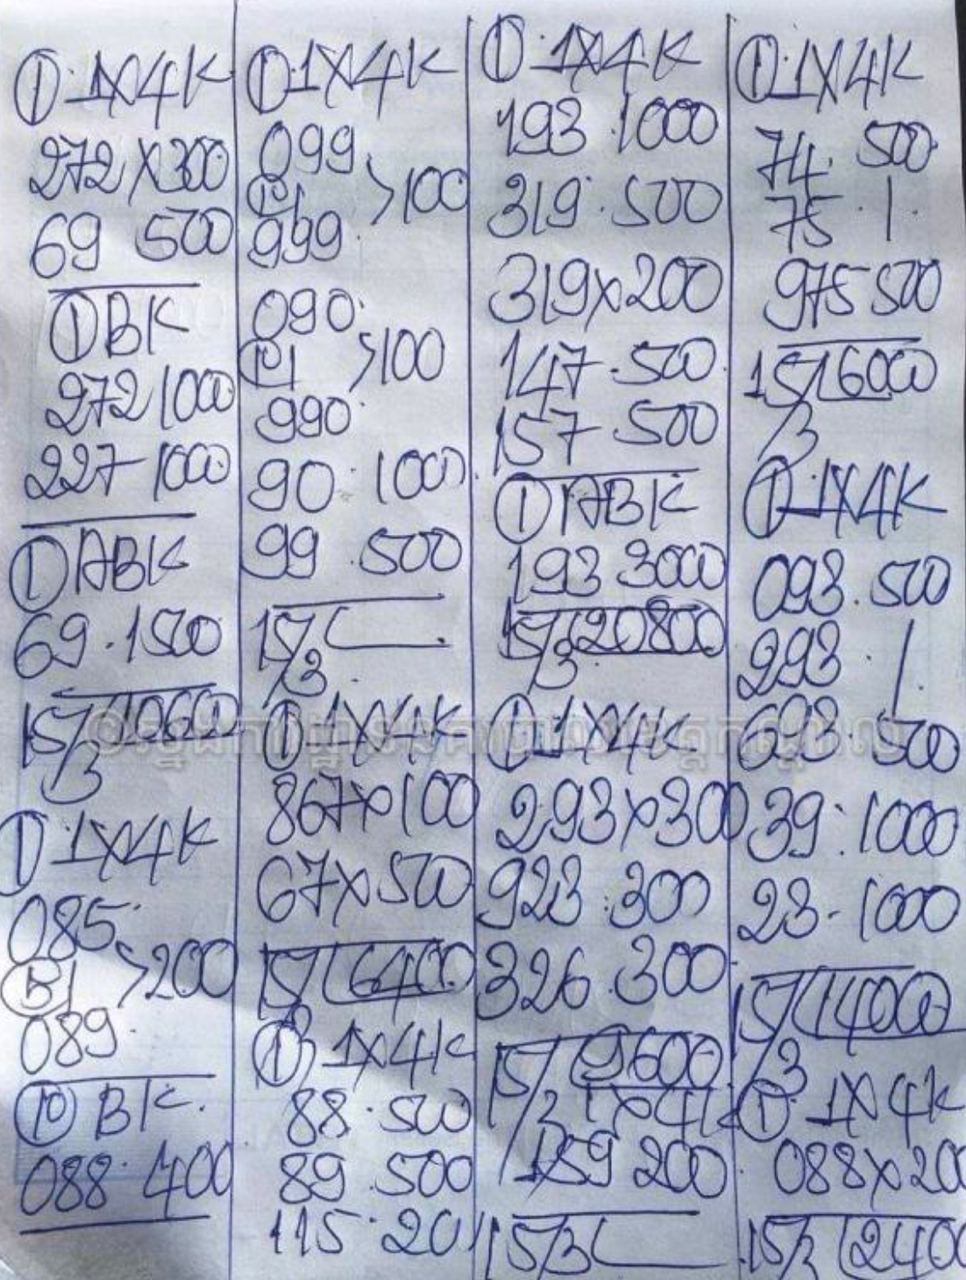 ① 1X4K
272 X 300
69 500
① BK
272 1000
227 1000
① ABK
69 · 1500
15/3 10600
① 1X4K
085
> 200
089
BK
088 · 400
① 1X4K
099
> 100
999
090
> 100
990
90 · 1000
99 · 500
15/3
① 1X4K
867 x 100
67 x 500
15/3 6400
① 1X4K
88 · 500
89 · 500
115 · 20
① 1X4K
193 · 1000
319 · 500
319 x 200
147 · 500
157 500
① ABK
193 3000
15/3 20800
① 1X4K
293 x 300
923 · 300
326 · 300
15/3 9600
1X4K
159 200
15/3
① 1X4K
74 · 500
75 · |
975 500
15/3 6000
① 1X4K
093 · 500
293 · |
693 · 500
39 · 1000
23 - 1000
15/3 14000
① 1X4K
088 x 200
15/3 2400